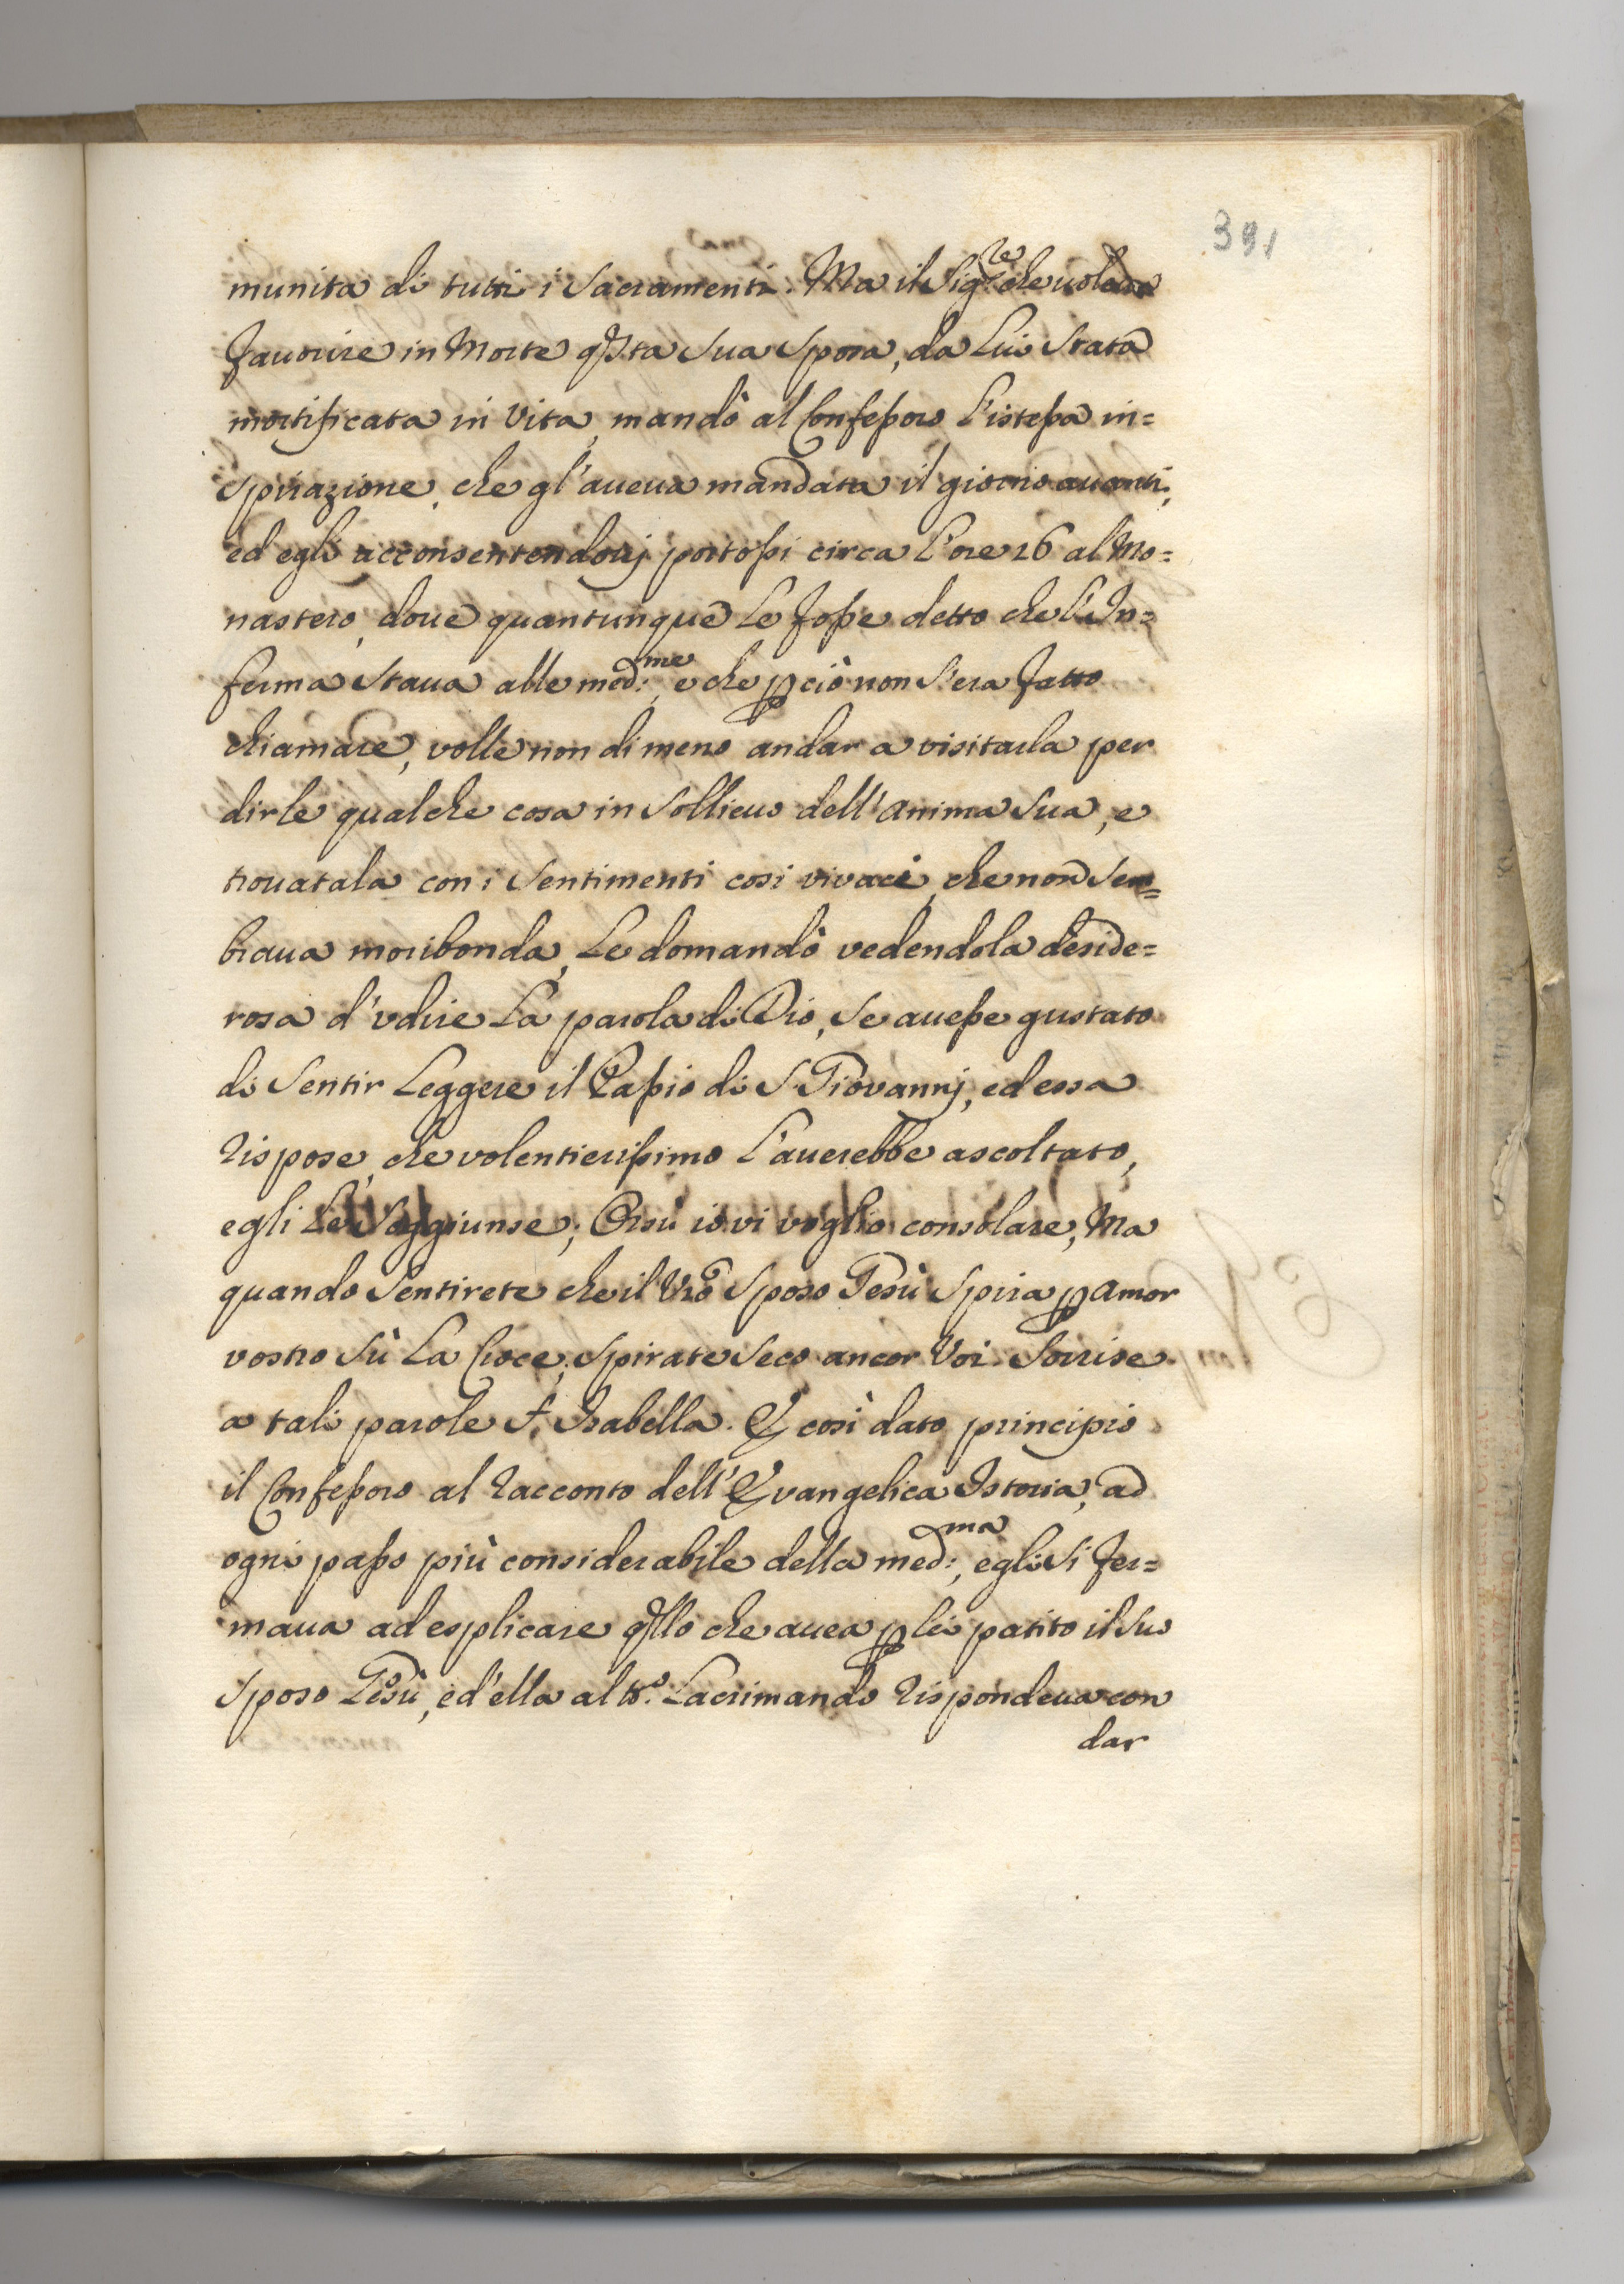 391
munita di tutti i Sacramenti. Ma il Sig.re che uoleua
fauorire in Morte qsta Sua Sposa, da Lui Stata
mortificata in Vita, mandò al Confessoro L'istessa in=
spirazione, che gl'aueua mandata il giorno auanti,
ed egli acconsentendouj portossi circa L'ore 16 al Mo=
nastero, doue quantunque Le fosse detto che L'In=
ferma Staua alle med:me, e che p ciò non S'era fatto
chiamare, volle non di meno andar a visitarla per
dirle qualche cosa in Sollieuo dell'anima Sua, e
trouatala con i Sentimenti cosi vivaci, che non Sem=
braua moribonda, Le domandò vedendola deside=
rosa d'vdire La parola di Dio, Se auesse gustato
di Sentir Leggere il Passio di S. Giovannj, ed essa
Rispose, che volentierissimo L'auerebbe ascoltato,
egli Le Soggiunse; Orsù io vi voglio consolare, Ma
quando Sentirete che il Vro Sposo Gesù Spira p amor
vostro Sù La Croce, Spirate Seco ancor Voi. Sorrise
a tali parole S. Isabella. E così dato principio
il Confessoro al Racconto dell'Evangelica Istoria, ad
ogni passo più considerabile della med:ma, egli Si fer=
maua ad esplicare qllo che auea p lei patito il Suo
Sposo Gesù, ed'ella al to. Lacrimando Rispondeua con
dar